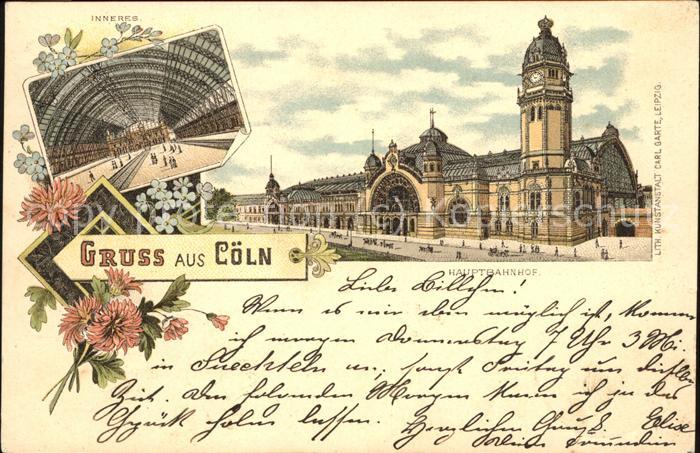 INNERES.
GRUSS AUS CÖLN
HAUPTBAHNHOF.
LITH. KUNSTANSTALT CARL GARTE, LEIPZIG.
Liebes Billchen!
Wenn es mir eben möglich ist, komme
ich morgen Donnerstag 7 Uhr 3 Mi
in Suechteln an, sonst Freitag um dieselbe
Zeit. Den folgenden Morgen kann ich ja das
Gepäck holen lassen. Herzlichen Gruß. Elise
Deine Freundin